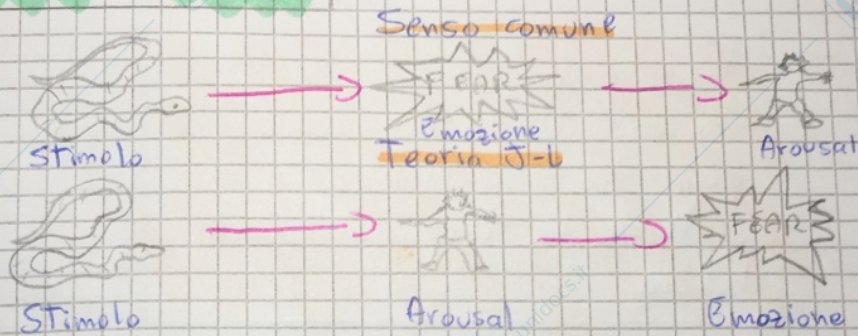 Senso comune
FEAR
Stimolo
Emozione
Arousal
Teoria J-L
FEAR
Stimolo
Arousal
Emozione